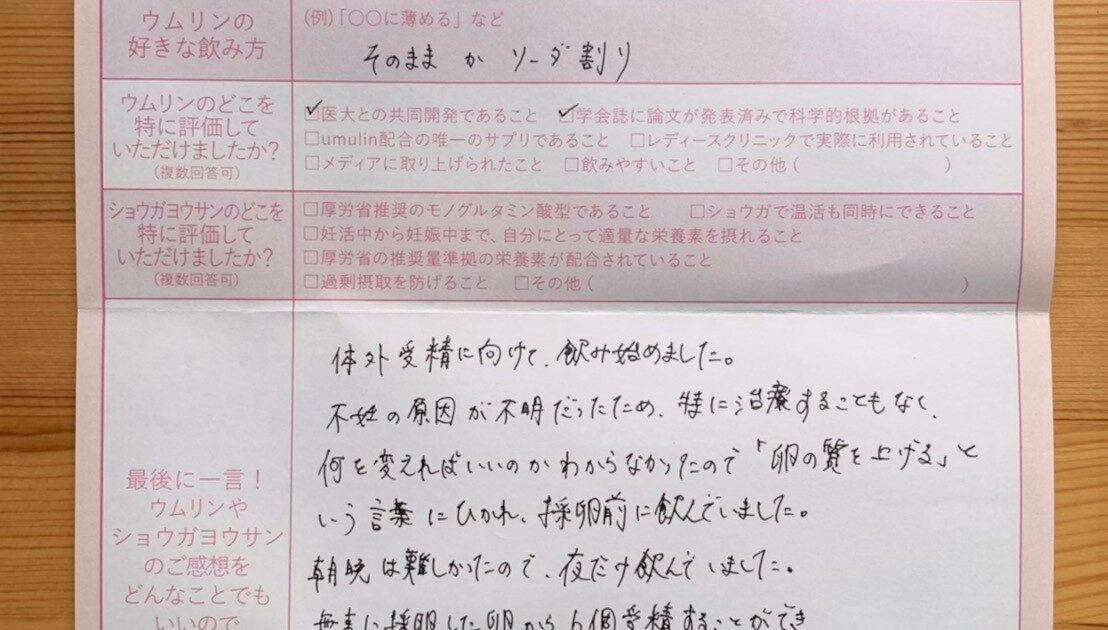 ウムリンの
好きな飲み方
(例)「〇〇に薄める」など
そのまま か ソーダ割り
ウムリンのどこを
特に評価して
いただけましたか?
(複数回答可)
☑医大との共同開発であること ☑学会誌に論文が発表済みで科学的根拠があること
□umulin配合の唯一のサプリであること □レディースクリニックで実際に利用されていること
□メディアに取り上げられたこと □飲みやすいこと □その他 ( )
ショウガヨウサンのどこを
特に評価して
いただけましたか?
(複数回答可)
□厚労省推奨のモノグルタミン酸型であること □ショウガで温活も同時にできること
□妊活中から妊娠中まで、自分にとって適量な栄養素を摂れること
□厚労省の推奨量準拠の栄養素が配合されていること
□過剰摂取を防げること □その他 ( )
最後に一言!
ウムリンや
ショウガヨウサン
のご感想を
どんなことでも
いいので
体外受精に向けて、飲み始めました。
不妊の原因が不明だったため、特に治療することもなく、
何を変えればいいのかわからなかったので「卵の質を上げる」と
いう言葉にひかれ、採卵前に飲んでいました。
朝晩は難しかったので、夜だけ飲んでいました。
無事に採卵した卵から6個受精することができ